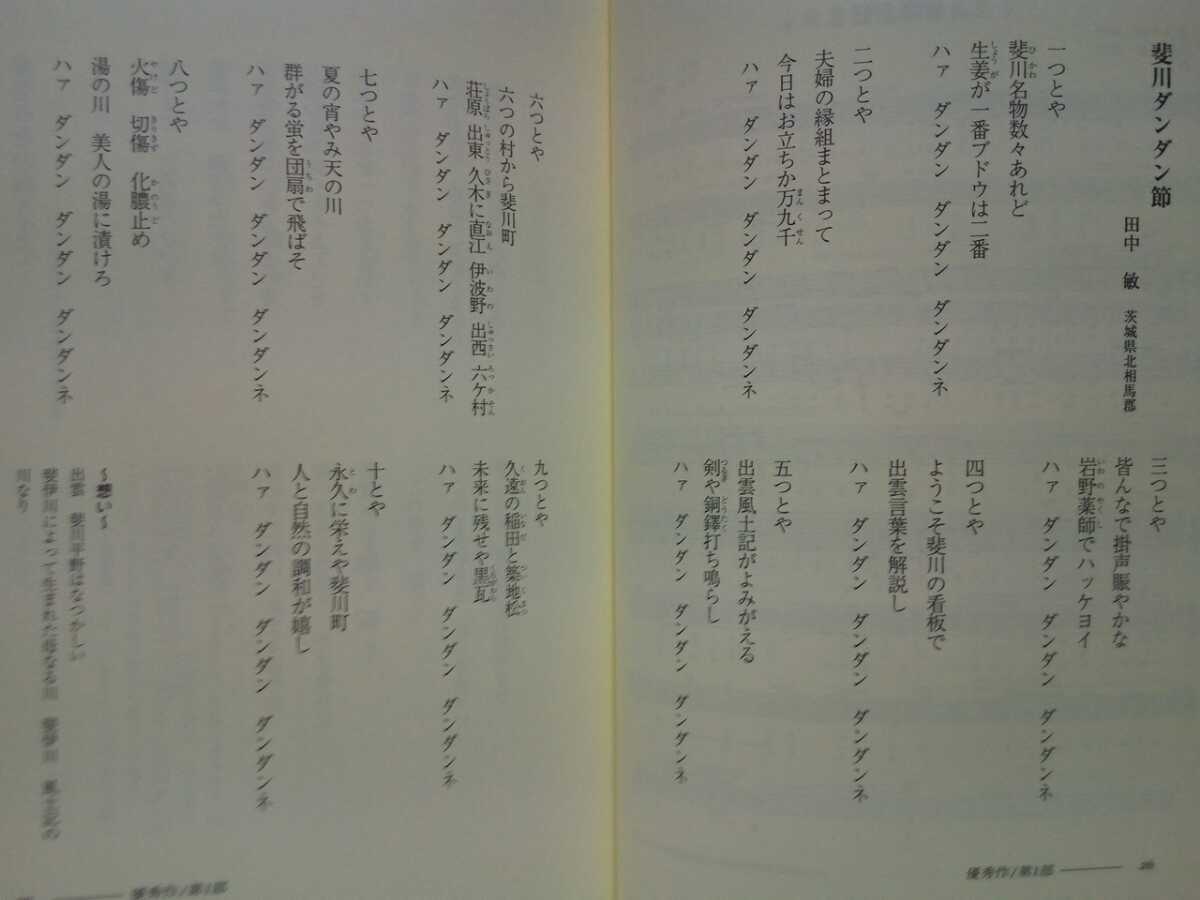 斐川ダンダン節
田中　敏　茨城県北相馬郡
一つとや
斐川名物数々あれど
生姜が一番ブドウは二番
ハァ　ダンダン　ダンダン　ダンダンネ
二つとや
夫婦の縁組まとまって
今日はお立ちか万九千
ハァ　ダンダン　ダンダン　ダンダンネ
三つとや
皆んなで掛声賑やかな
岩野薬師でハッケヨイ
ハァ　ダンダン　ダンダン　ダンダンネ
四つとや
ようこそ斐川の看板で
出雲言葉を解説し
ハァ　ダンダン　ダンダン　ダンダンネ
五つとや
出雲風土記がよみがえる
剣や銅鐸打ち鳴らし
ハァ　ダンダン　ダンダン　ダンダンネ
優秀作/第1部
六つとや
六つの村から斐川町
荘原　出東　久木に直江　伊波野　出西　六ケ村
ハァ　ダンダン　ダンダン　ダンダンネ
七つとや
夏の宵やみ天の川
群がる蛍を団扇で飛ばそ
ハァ　ダンダン　ダンダン　ダンダンネ
八つとや
火傷　切傷　化膿止め
湯の川　美人の湯に漬けろ
ハァ　ダンダン　ダンダン　ダンダンネ
九つとや
久遠の稲田と築地松
未来に残せや黒瓦
ハァ　ダンダン　ダンダン　ダンダンネ
十とや
永久に栄えや斐川町
人と自然の調和が嬉し
ハァ　ダンダン　ダンダン　ダンダンネ
～想い～
出雲　斐川平野はなつかしい
斐伊川によって生まれた母なる川　斐伊川
川なり
優秀作/第1部